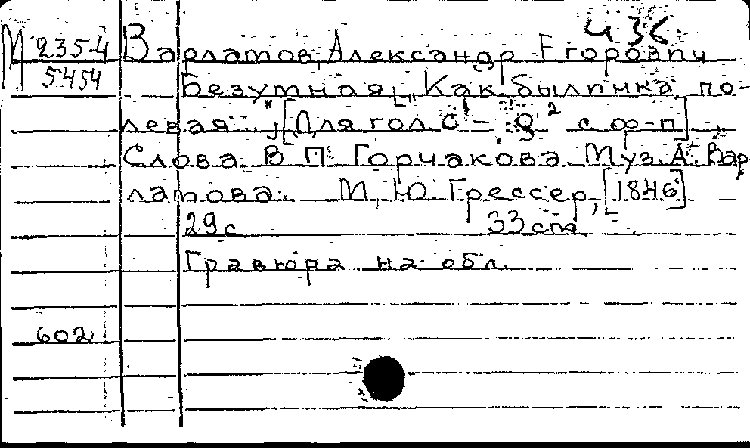 436
М 235-4 Варламов, Александр Егорович
5454 Безумная. "Как былинка по-
левая...", [Для гол. с¹ - g² с ф-п]
Слова В. П. Горчакова. Муз. А. Вар
ламова. М, Ю. Грессер, [1846]
29 с 33 см
Гравюра на обл.
602